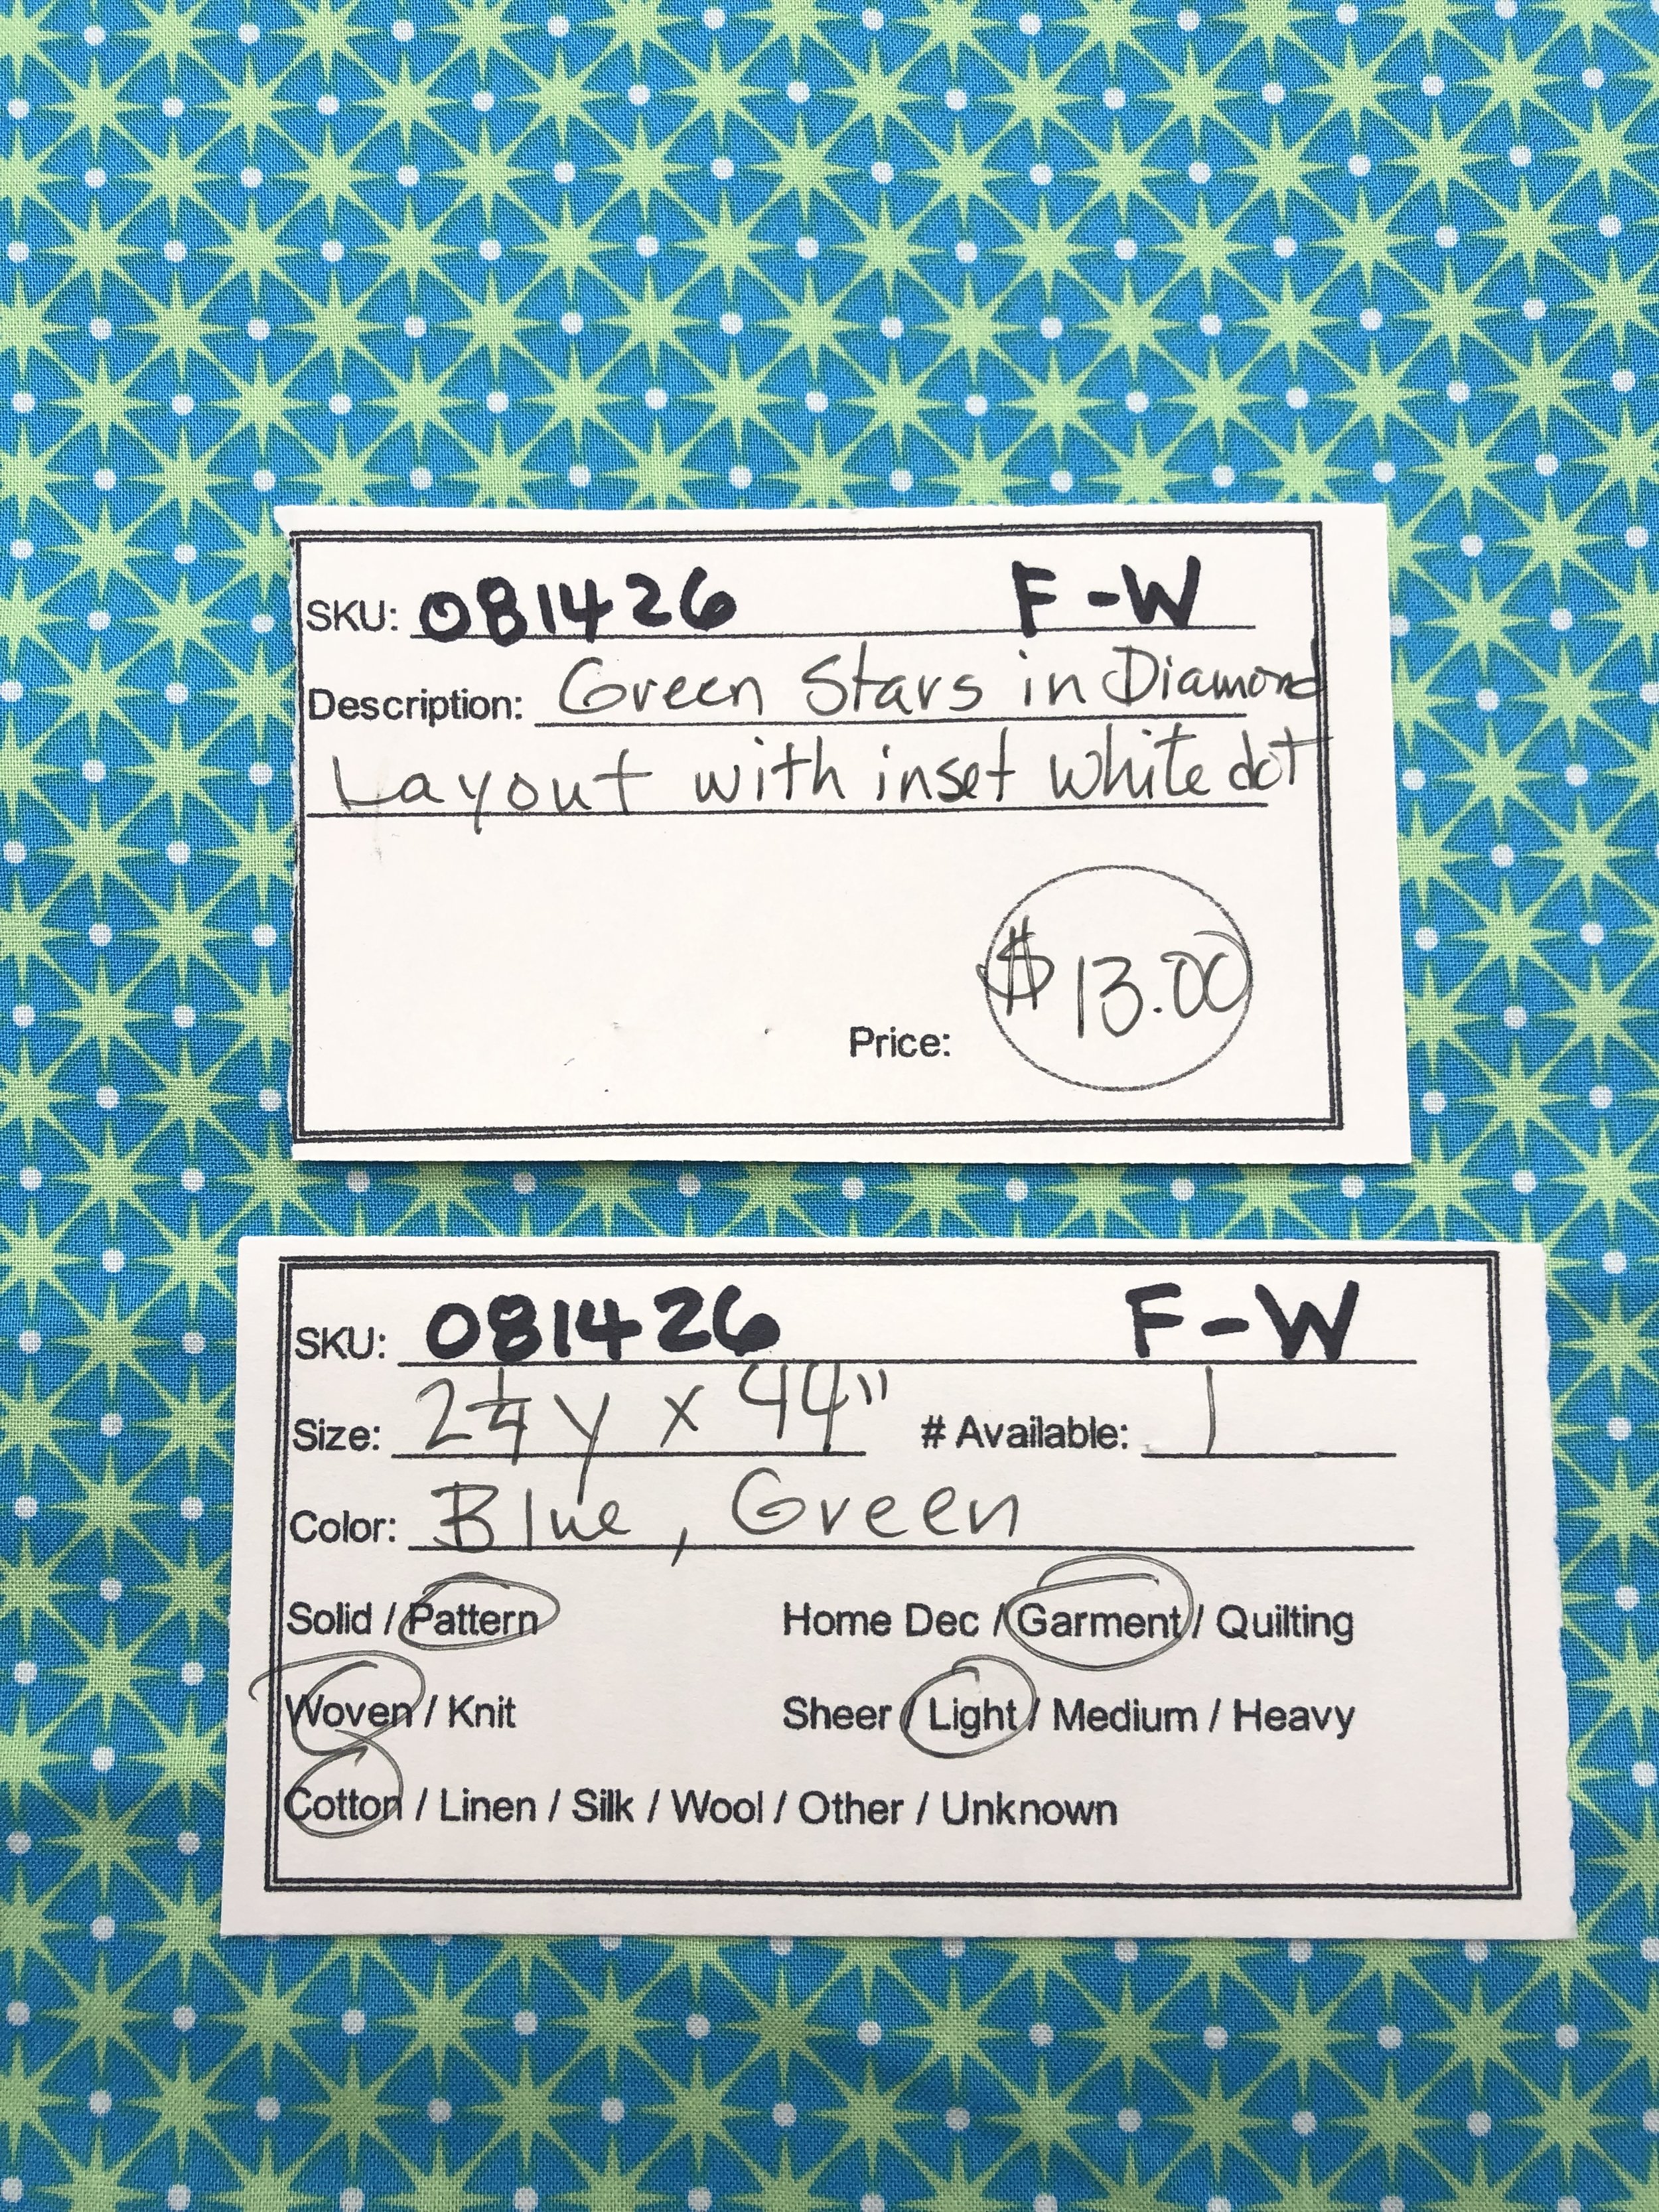 SKU: 081426 F-W
Description: Green Stars in Diamond
Layout with inset white dot
Price: $13.00
SKU: 081426 F-W
Size: 2¼ y x 44" # Available: 1
Color: Blue, Green
Solid / Pattern Home Dec / Garment / Quilting
Woven / Knit Sheer / Light / Medium / Heavy
Cotton / Linen / Silk / Wool / Other / Unknown